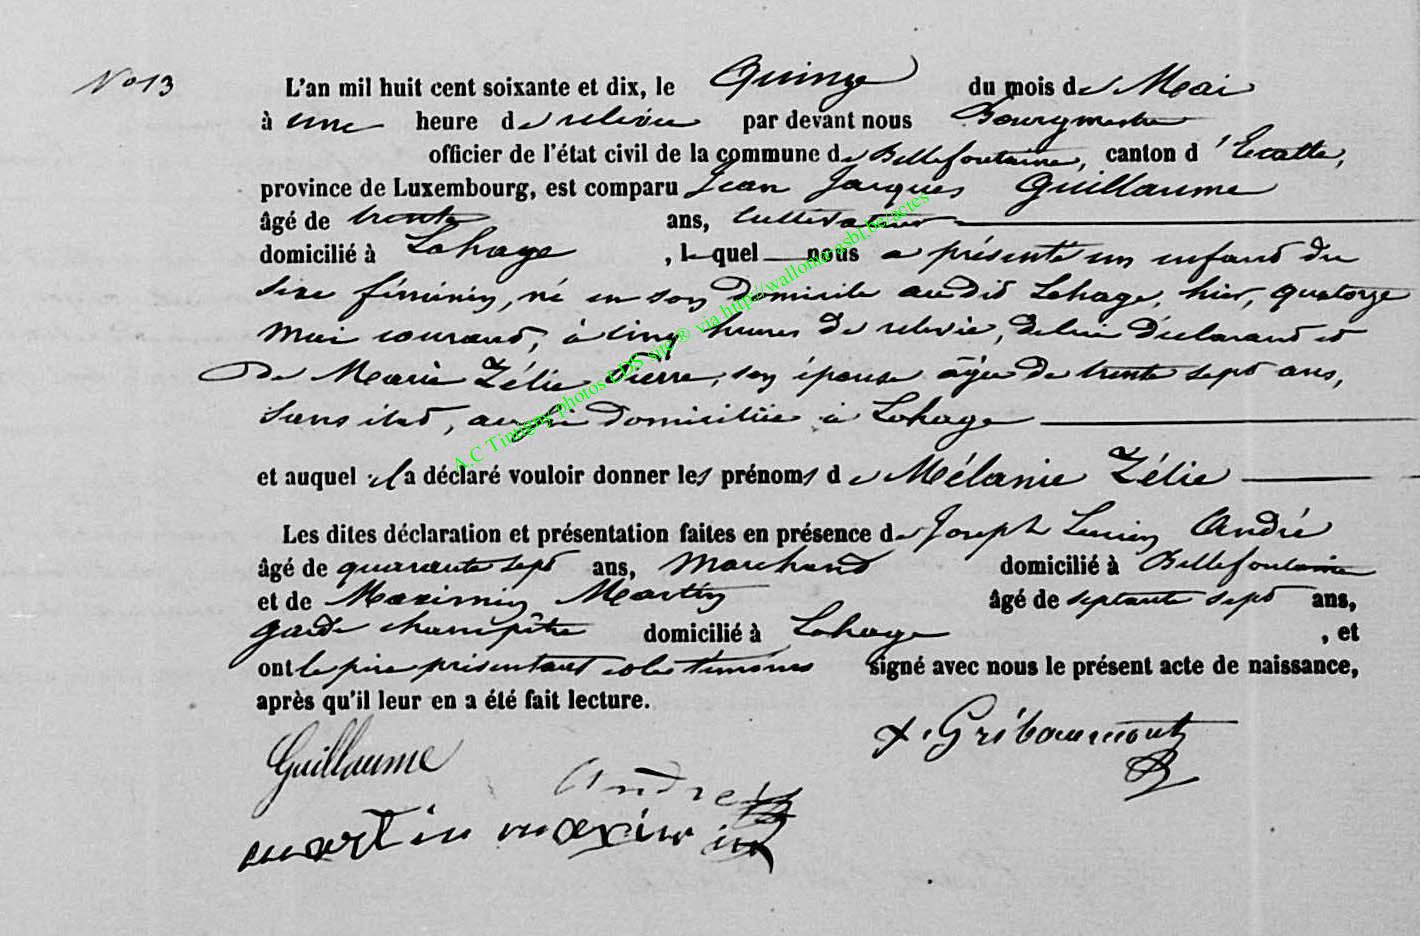 No 13
L'an mil huit cent soixante et dix, le Quinze du mois de Mai
à une heure de relevée par devant nous Bourgmestre
officier de l'état civil de la commune de Bellefontaine, canton d'Etalle,
province de Luxembourg, est comparu Jean Jacques Guillaume
âgé de trente ans, Cultivateur
domicilié à Lahage, lequel nous a présenté un enfant du
sexe féminin, né en son domicile audit Lahage, hier, quatorze
mai courant, à cinq heures de relevée, de lui déclarant et
de Marie Zélie Pierre, son épouse âgée de trente sept ans,
sans état, aussi domiciliée à Lahage
et auquel il a déclaré vouloir donner les prénoms de Mélanie Zélie
Les dites déclaration et présentation faites en présence de Joseph Lucien André
âgé de quarante sept ans, Marchand domicilié à Bellefontaine
et de Maximin Martin âgé de septante sept ans,
garde champêtre domicilié à Lahage, et
ont le père présentant et les témoins signé avec nous le présent acte de naissance,
après qu'il leur en a été fait lecture.
Guillaume
André
martin maximin
Gribaumont
A.C Tintigny photos LDS site ® via http://wallonia.asbl.be/actes